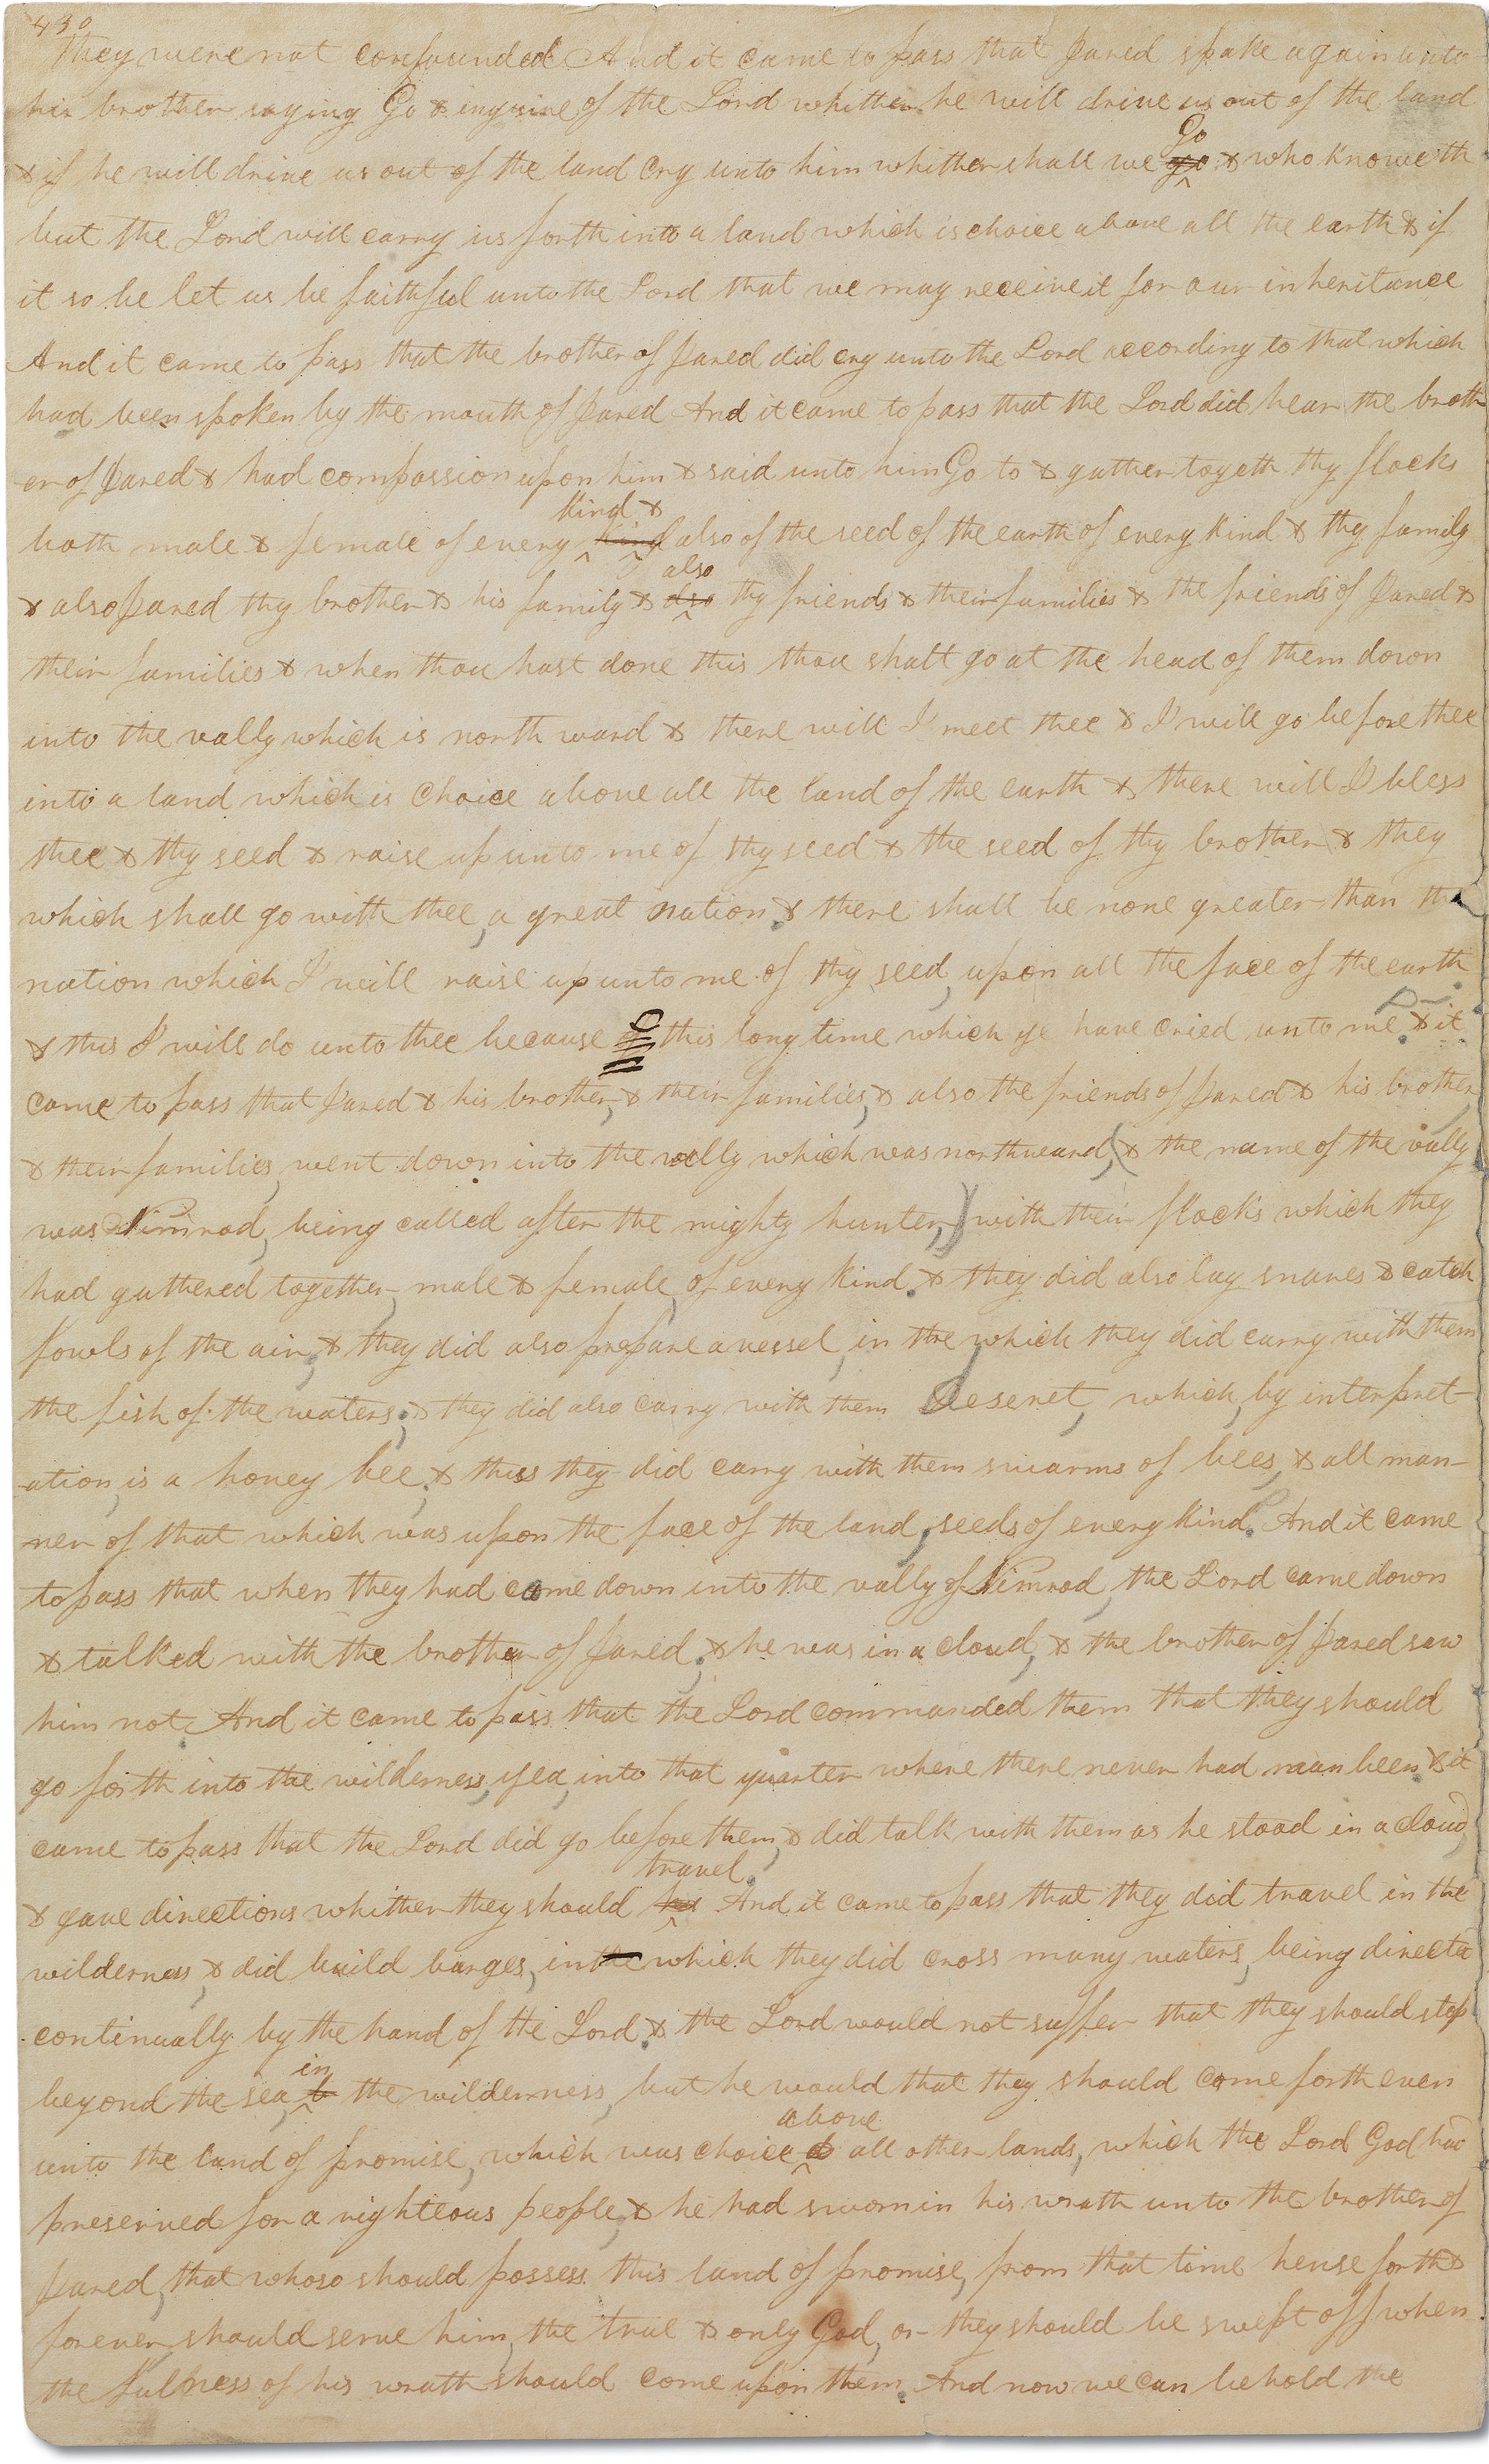 430
they were not confounded And it came to pass that Jared spake again unto
his brother saying Go & enquire of the Lord whither he will drive us out of the land
Go
& if he will drive us out of the land cry unto him whither shall we go & who knoweth
but the Lord will carry us forth into a land which is choice above all the earth & if
it so be let us be faithful unto the Lord that we may receive it for our inheritance
And it came to pass that the brother of Jared did cry unto the Lord according to that which
had been spoken by the mouth of Jared And it came to pass that the Lord did hear the broth
er of Jared & had compassion upon him & said unto him Go to & gather togeth thy flocks
kind &
both male & female of every king also of the seed of the earth of every kind & thy family
also
& also Jared thy brother & his family & also thy friends & their families & the friends of Jared &
their families & when thou hast done this thou shalt go at the head of them down
into the vally which is north ward & there will I meet thee & I will go before thee
into a land which is choice above all the land of the earth & there will I bless
thee & thy seed & raise up unto me of thy seed & the seed of thy brother & they
which shall go with thee, a great nation, & there shall be none greater than the
nation which I will raise up unto me of thy seed, upon all the face of the earth
& this I will do unto thee because of this long time which ye have cried unto me. & it
came to pass that Jared & his brother, & their families, & also the friends of Jared & his brother
& their families, went down into the vally which was northward, (& the name of the vally
was Nimrod, being called after the mighty hunter,) with their flocks which they
had gathered together, male & female, of every kind. & they did also lay snares & catch
fowls of the air, & they did also prepare a vessel, in the which they did carry with them
the fish of the waters; & they did also carry with them Deseret, which, by interpret-
ation, is a honey bee; & thus they did carry with them swarms of bees, & all man-
ner of that which was upon the face of the land, seeds of every kind. And it came
to pass that when they had come down into the vally of Nimrod, the Lord came down
& talked with the brother of Jared; & he was in a cloud, & the brother of Jared saw
him not. And it came to pass that the Lord commanded them that they should
go forth into the wilderness, yea, into that quarter where there never had man been. & it
came to pass that the Lord did go before them, & did talk with them as he stood in a cloud,
travel.
& gave directions whither they should And it came to pass that they did travel in the
wilderness, & did build barges, in the which they did cross many waters, being directed
continually by the hand of the Lord. & the Lord would not suffer that they should stop
in
beyond the sea, the wilderness, but he would that they should come forth even
above
unto the land of promise, which was choice all other lands, which the Lord God had
preserved for a righteous people; & he had sworn in his wrath unto the brother of
Jared, that whoso should possess this land of promise, from that time hense forth &
forever, should serve him, the true & only God, or they should be swept off when
the fulness of his wrath should come upon them. And now we can behold the